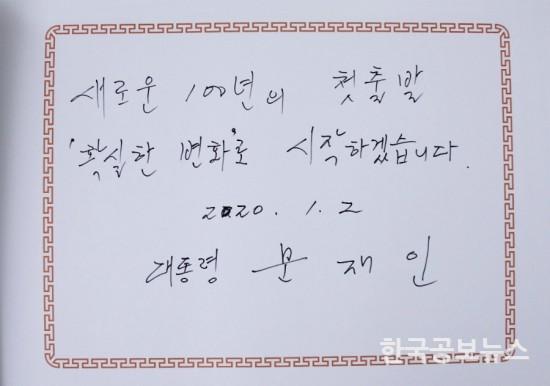 새로운 100년의 첫출발
'확실한 변화'로 시작하겠습니다.
2020. 1. 2
대통령 문재인
한국공보뉴스